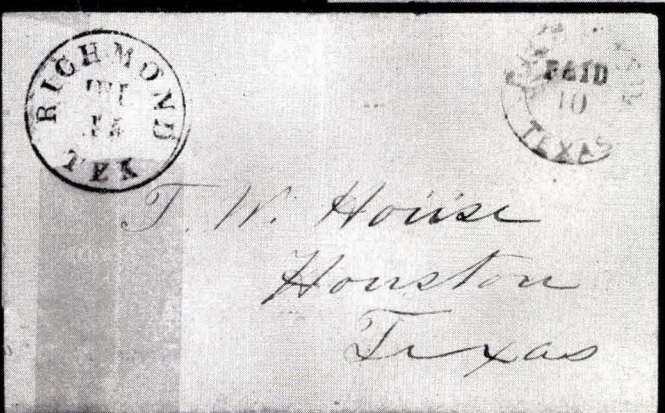 RICHMOND
JUL
TEX
PAID
10
TEXAS
T. W. House
Houston
Texas